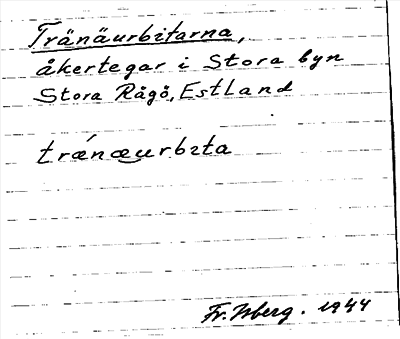 Tränäurbitarna,
åkertegar i Stora byn
Stora Rågö, Estland
tránæurbıta
Fr. Isberg. 1944